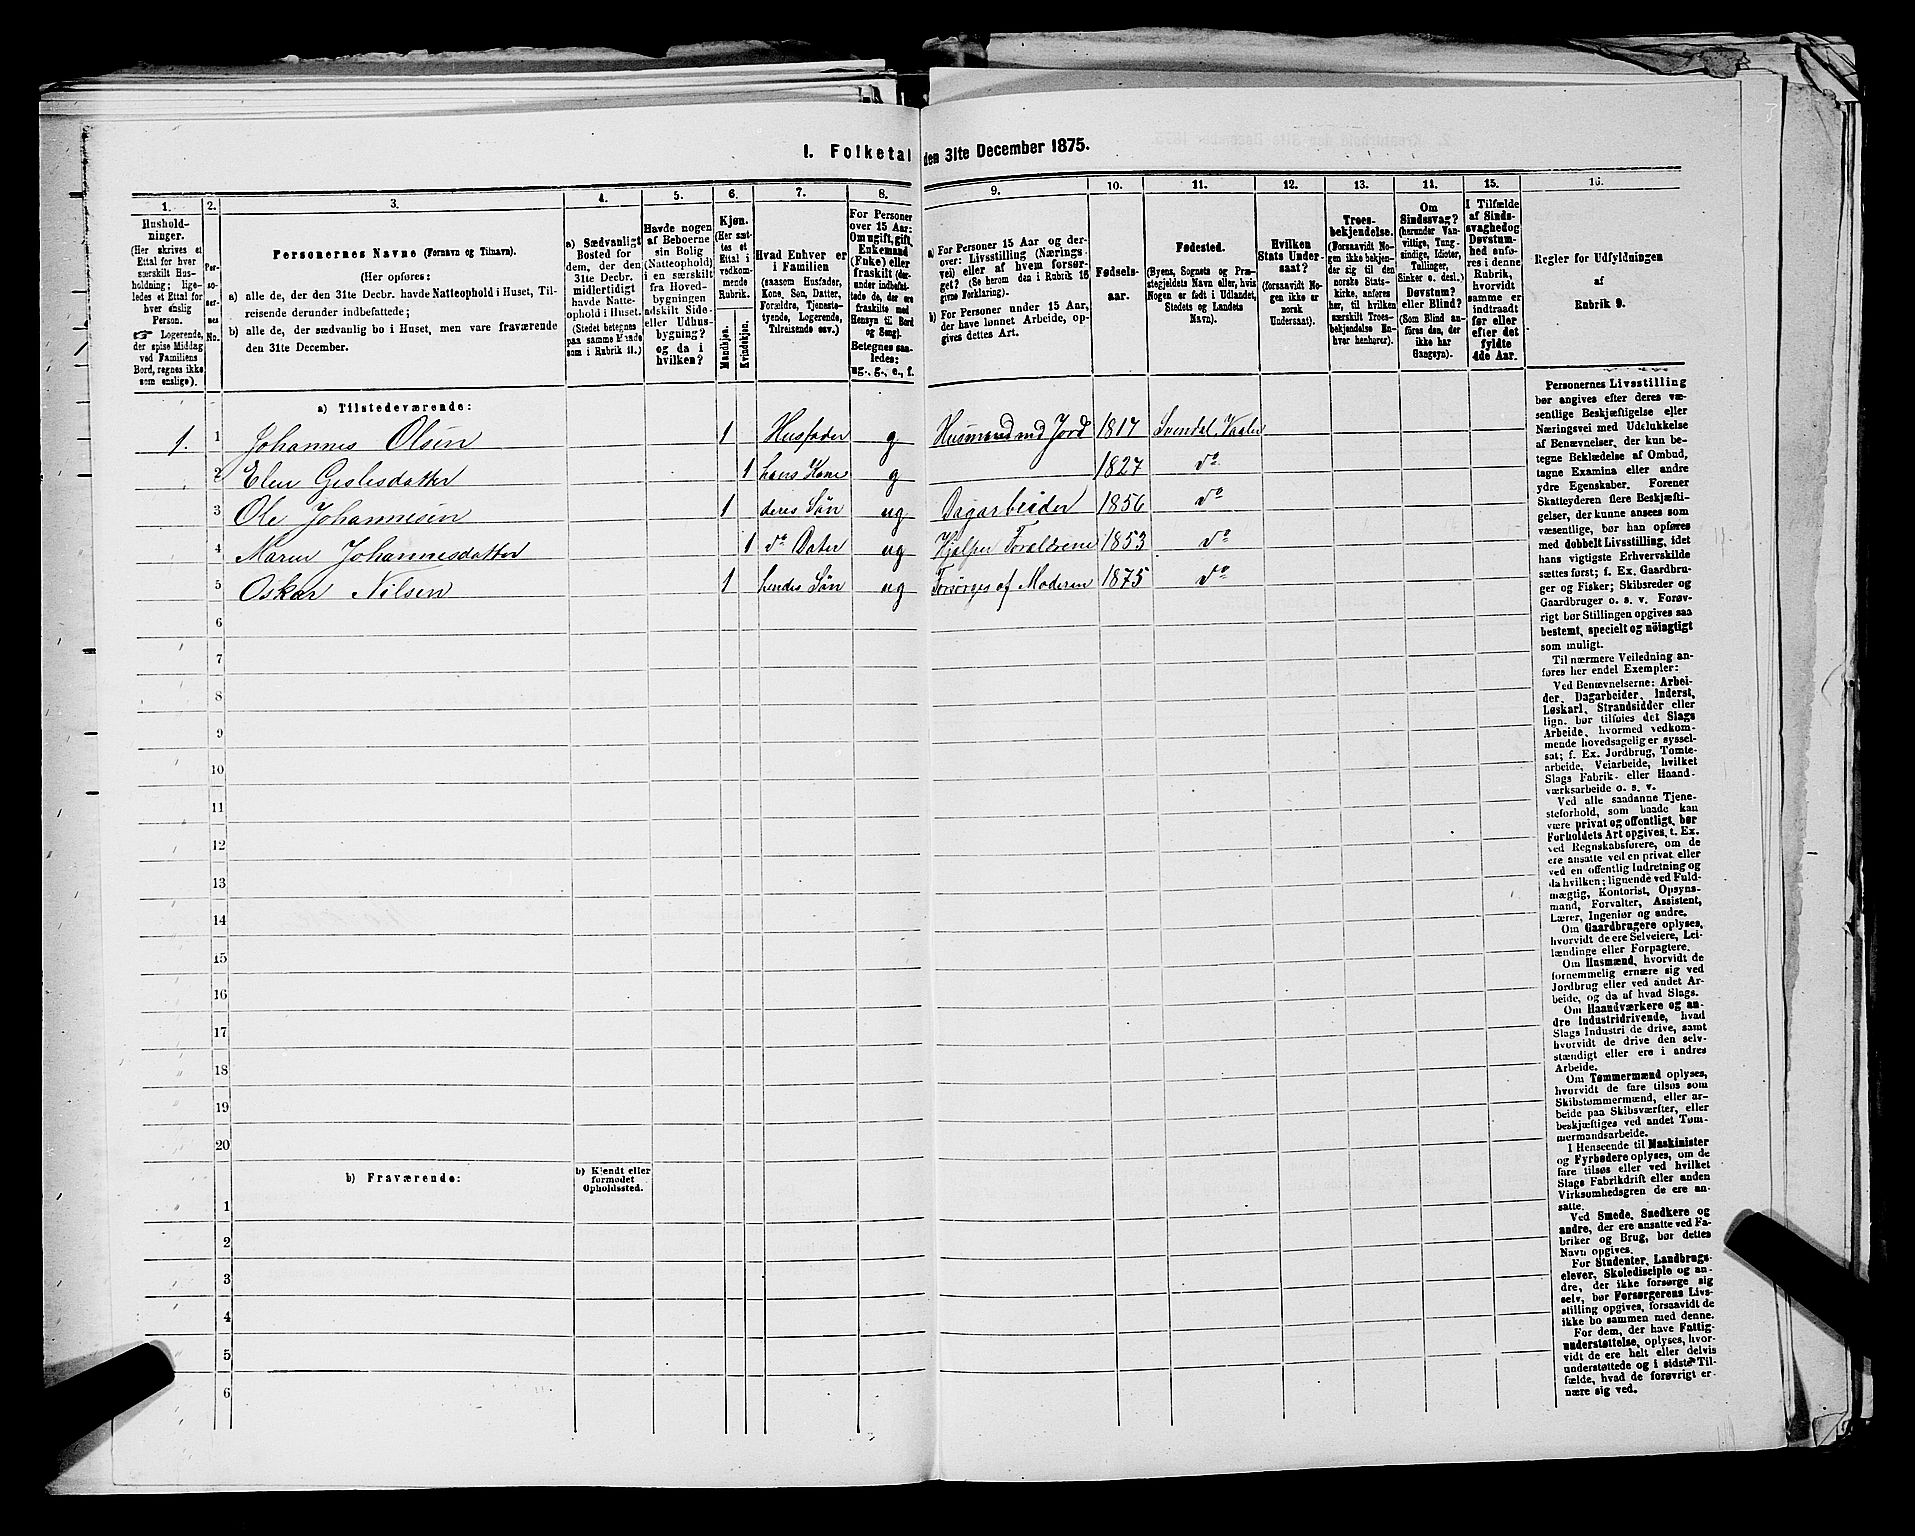 I. Folketal den 31te December 1875.
1. 2. 3. 4. 5. 6. 7. 8. 9. 10. 11. 12. 13. 14. 15. 16.
Hushold-
ninger.
(Her skrives et
Ettal for hver
særskilt Hus-
holdning; lige-
ledes et Ettal for
hver enslig
Person.
☞ Logerende,
der spise Middag
ved Familiens
Bord, regnes ikke
som enslige).
Per-
so-
ner-
nes
No.
Personernes Navne (Fornavn og Tilnavn).
(Her opføres:
a) alle de, der den 31te Decbr. havde Natteophold i Huset, Til-
reisende derunder indbefattede;
b) alle de, der sædvanlig bo i Huset, men vare fraværende
den 31te December.)
a) Sædvanligt
Bosted for
dem, der den
31te Decbr.
midlertidigt
havde Natte-
ophold i Huset.
(Stedet betegnes
paa samme Maade
som i Rubrik 11.)
Havde nogen
af Beboerne
sin Bolig
(Natteophold)
i en særskilt
fra Hoved-
bygningen
adskilt Side-
eller Udhus-
bygning?
og da i
hvilken?
Kjøn.
(Her sæt-
tes et
Ettal i
vedkom-
mende
Rubrik.
Mandkjøn.
Kvindekjøn.
Hvad Enhver er
i Familien
(saasom Husfader,
Kone, Søn, Datter,
Forældre, Tjeneste-
tyende, Logerende,
Tilreisende osv.)
For Personer
over 15 Aar:
Om ugift, gift,
Enkemand
(Enke) eller
fraskilt (der-
under indbefat-
tede de, der ere
fraskilte med
Hensyn til Bord
og Seng).
Betegnes saa-
ledes:
ug., g., e., f.
a) For Personer 15 Aar og der-
over: Livsstilling (Nærings-
vei) eller af hvem forsør-
get? (Se herom den i Rubrik 16
givne Forklaring).
b) For Personer under 15 Aar,
der have lønnet Arbeide, op-
gives dettes Art.
Fødsels-
aar.
Fødested.
(Byens, Sognets og Præ-
stegjeldets Navn eller, hvis
Nogen er født i Udlandet,
Stedets og Landets
Navn).
Hvilken
Stats Under-
saat?
(forsaavidt No-
gen ikke er
norsk
Undersaat).
Troes-
bekjendelse.
(Forsaavidt No-
gen ikke bekjen-
der sig til den
norske Stats-
kirke, anføres
her, til hvilken
særskilt Troes-
bekjendelse En-
hver henhører).
Om
Sindssvag?
(herunder Van-
vittige, Tung-
sindige, Idioter,
Tullinger,
Sinker o. desl.)
Døvstum?
eller Blind?
(Som Blind an-
føres den, der
ikke har
Gangsyn).
I Tilfælde
af Sinds-
svaghed og
Døvstum-
hed anfø-
res i denne
Rubrik,
hvorvidt
samme er
indtraadt
før eller
efter det
fyldte
4de Aar.
Regler for Udfyldningen
af
Rubrik 9.
a) Tilstedeværende:
1. 1 Johannes Olsen 1 Husfader g Husmand md Jord 1817 Svendal. Vaaler
2 Elen Geslesdatter 1 hans Kone g 1827 do
3 Ole Johannesen 1 deres Søn ug Dagarbeider 1856 do
4 Maren Johannesdatter 1 do Dater ug Hjælper Forældrene 1853 do
5 Oskar Nilsen 1 hendes Søn ug Forsørges af Moderen 1875 do
6
7
8
9
10
11
12
13
14
15
16
17
18
19
20
b) Fraværende:
b) Kjendt eller
formodet
Opholdssted.
1
2
3
4
5
6
Personernes Livsstilling
bør angives efter deres væ-
sentlige Beskjæftigelse eller
Næringsvei med Udelukkelse
af Benævnelser, der kun be-
tegne Beklædelse af Ombud,
tagne Examina eller andre
ydre Egenskaber. Forener
Skatteyderen flere Beskjæfti-
gelser, der kunne ansees som
væsentlige, bør han opføres
med dobbelt Livsstilling, idet
hans vigtigste Erhvervskilde
sættes først; f. Ex. Gaardbru-
ger og Fisker; Skibsreder og
Gaardbruger o. s. v. Forøv-
rigt bør Stillingen opgives saa
bestemt, specielt og nøiagtigt
som muligt.
Til nærmere Veiledning an-
føres her endel Exempler:
Ved Benævnelserne: Arbei-
der, Dagarbeider, Inderst,
Løskarl, Strandsidder eller
lign. bør tilføies det Slags
Arbeide, hvormed vedkom-
mende hovedsagelig er syssel-
sat; f. Ex. Jordbrug, Tomte-
arbeide, Veiarbeide, hvilket
Slags Fabrik- eller Haand-
værksarbeide o. s. v.
Ved alle saadanne Tjene-
steforhold, som baade kan
være privat og offentligt, bør
Forholdets Art opgives, t. Ex.
ved Regnskabsførere, om de
ere ansatte ved en privat eller
ved en offentlig Indretning og
da hvilken; lignende ved Fuld-
mægtig, Kontorist, Opsyns-
mand, Forvalter, Assistent,
Lærer, Ingeniør og andre.
Om Gaardbrugere oplyses,
hvorvidt de ere Selveiere, Lei-
lændinge eller Forpagtere.
Om Husmænd, hvorvidt de
fornemmelig ernære sig ved
Jordbrug eller ved andet Ar-
beide, og da af hvad Slags.
Om Haandværkere og an-
dre Industridrivende, hvad
Slags Industri de drive, samt
hvorvidt de drive den selv-
stændigt eller ere i andres
Arbeide.
Om Tømmermænd oplyses,
hvorvidt de fare tilsøs som
Skibstømmermænd, eller ar-
beide paa Skibsværfter, eller
beskjæftiges ved andet Tøm-
mermandsarbeide.
I Henseende til Maskinister
og Fyrbødere oplyses, om de
fare tilsøs eller ved hvilket
Slags Fabrikdrift eller anden
Virksomhedsgren de ere an-
satte.
Ved Smede, Snedkere og
andre, der ere ansatte ved Fa-
briker og Brug, bør dettes
Navn opgives.
For Studenter, Landbrugs-
elever, Skoledisciple og an-
dre, der ikke forsørge sig
selv, bør Forsørgerens Livs-
stilling opgives, forsaavidt de
ikke bo sammen med denne.
For dem, der have Fattig-
understøttelse, oplyses, hvor-
vidt de ere helt eller delvis
understøttede og i sidste Til-
fælde, hvad de forøvrigt er-
nære sig ved.